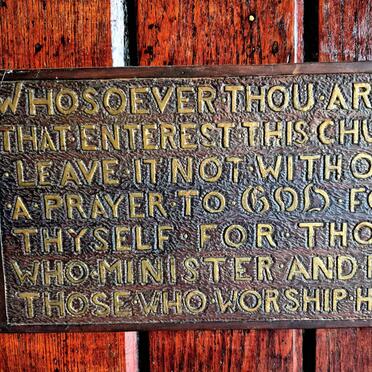 WHOSOEVER THOU AR
THAT ENTEREST THIS CHU
·LEAVE IT NOT WITHO
·A PRAYER TO GOD FO
THYSELF·FOR THO
WHO·MINISTER AND
THOSE·WHO WORSHIP H